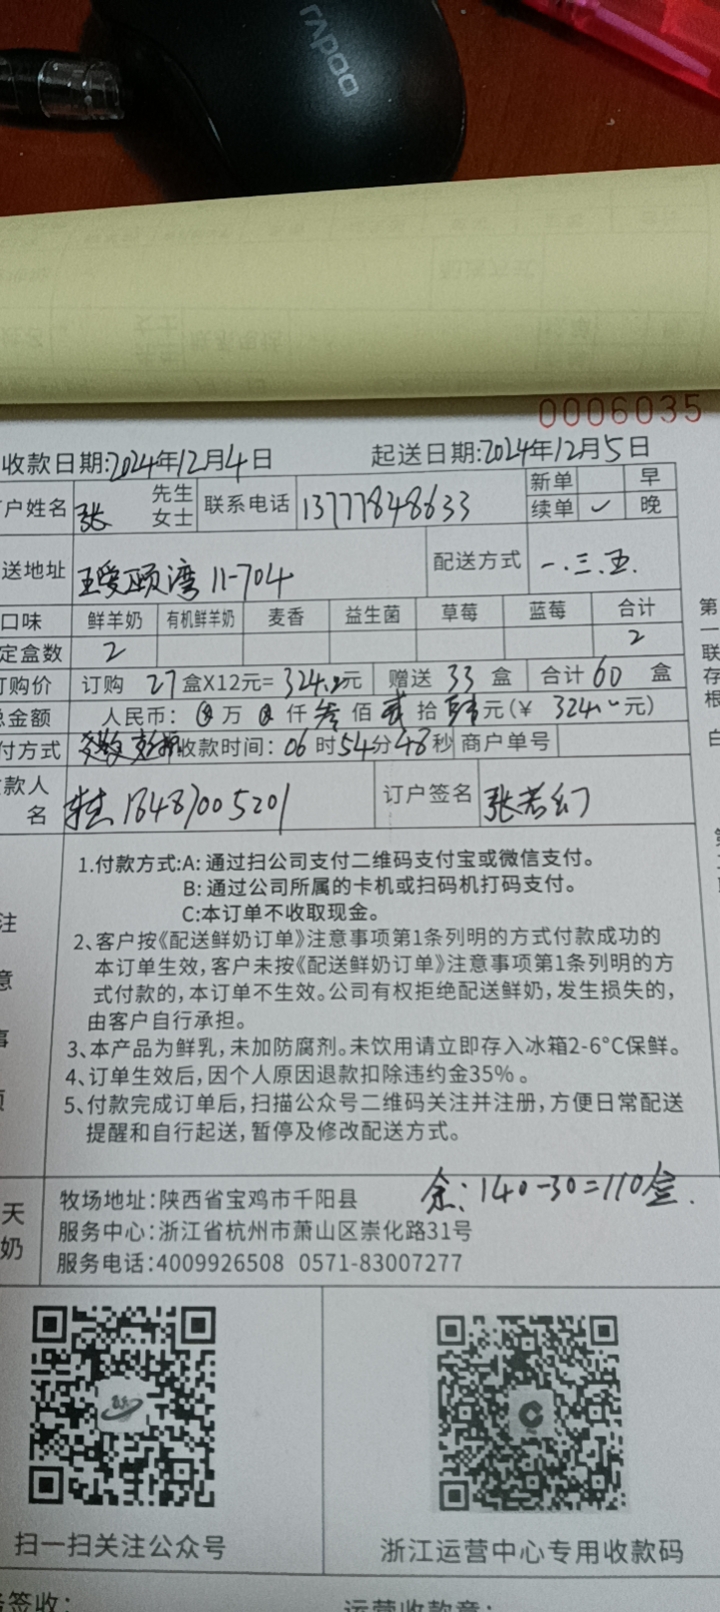 rapoo
0006035
收款日期:2024年12月4日 起送日期:2024年12月5日
户姓名 张 先生 女士 联系电话 13777848633 新单 早
续单 ✓ 晚
送地址 瑷颐湾 11-704 配送方式 一.三.五.
口味 鲜羊奶 有机鲜羊奶 麦香 益生菌 草莓 蓝莓 合计
定盒数 2 2
订购价 订购 27盒X12元= 324.0元 赠送 33 盒 合计 60 盒
总金额 人民币: 万 仟 叁 佰 贰 拾 肆元(¥ 324.00元)
付方式 收款时间: 06时54分48秒 商户单号
款人
名 18487005201 订户签名 张若幻
1.付款方式:A: 通过扫公司支付二维码支付宝或微信支付。
B: 通过公司所属的卡机或扫码机打码支付。
C:本订单不收取现金。
2、客户按《配送鲜奶订单》注意事项第1条列明的方式付款成功的
本订单生效,客户未按《配送鲜奶订单》注意事项第1条列明的方
式付款的,本订单不生效。公司有权拒绝配送鲜奶,发生损失的,
由客户自行承担。
3、本产品为鲜乳,未加防腐剂。未饮用请立即存入冰箱2-6°C保鲜。
4、订单生效后,因个人原因退款扣除违约金35%。
5、付款完成订单后,扫描公众号二维码关注并注册,方便日常配送
提醒和自行起送,暂停及修改配送方式。
注
意
事
项
第
一
联
存
根
白
余: 140-30=110盒.
天
奶
牧场地址:陕西省宝鸡市千阳县
服务中心:浙江省杭州市萧山区崇化路31号
服务电话:4009926508 0571-83007277
扫一扫关注公众号 浙江运营中心专用收款码
签收: 运营收款章: